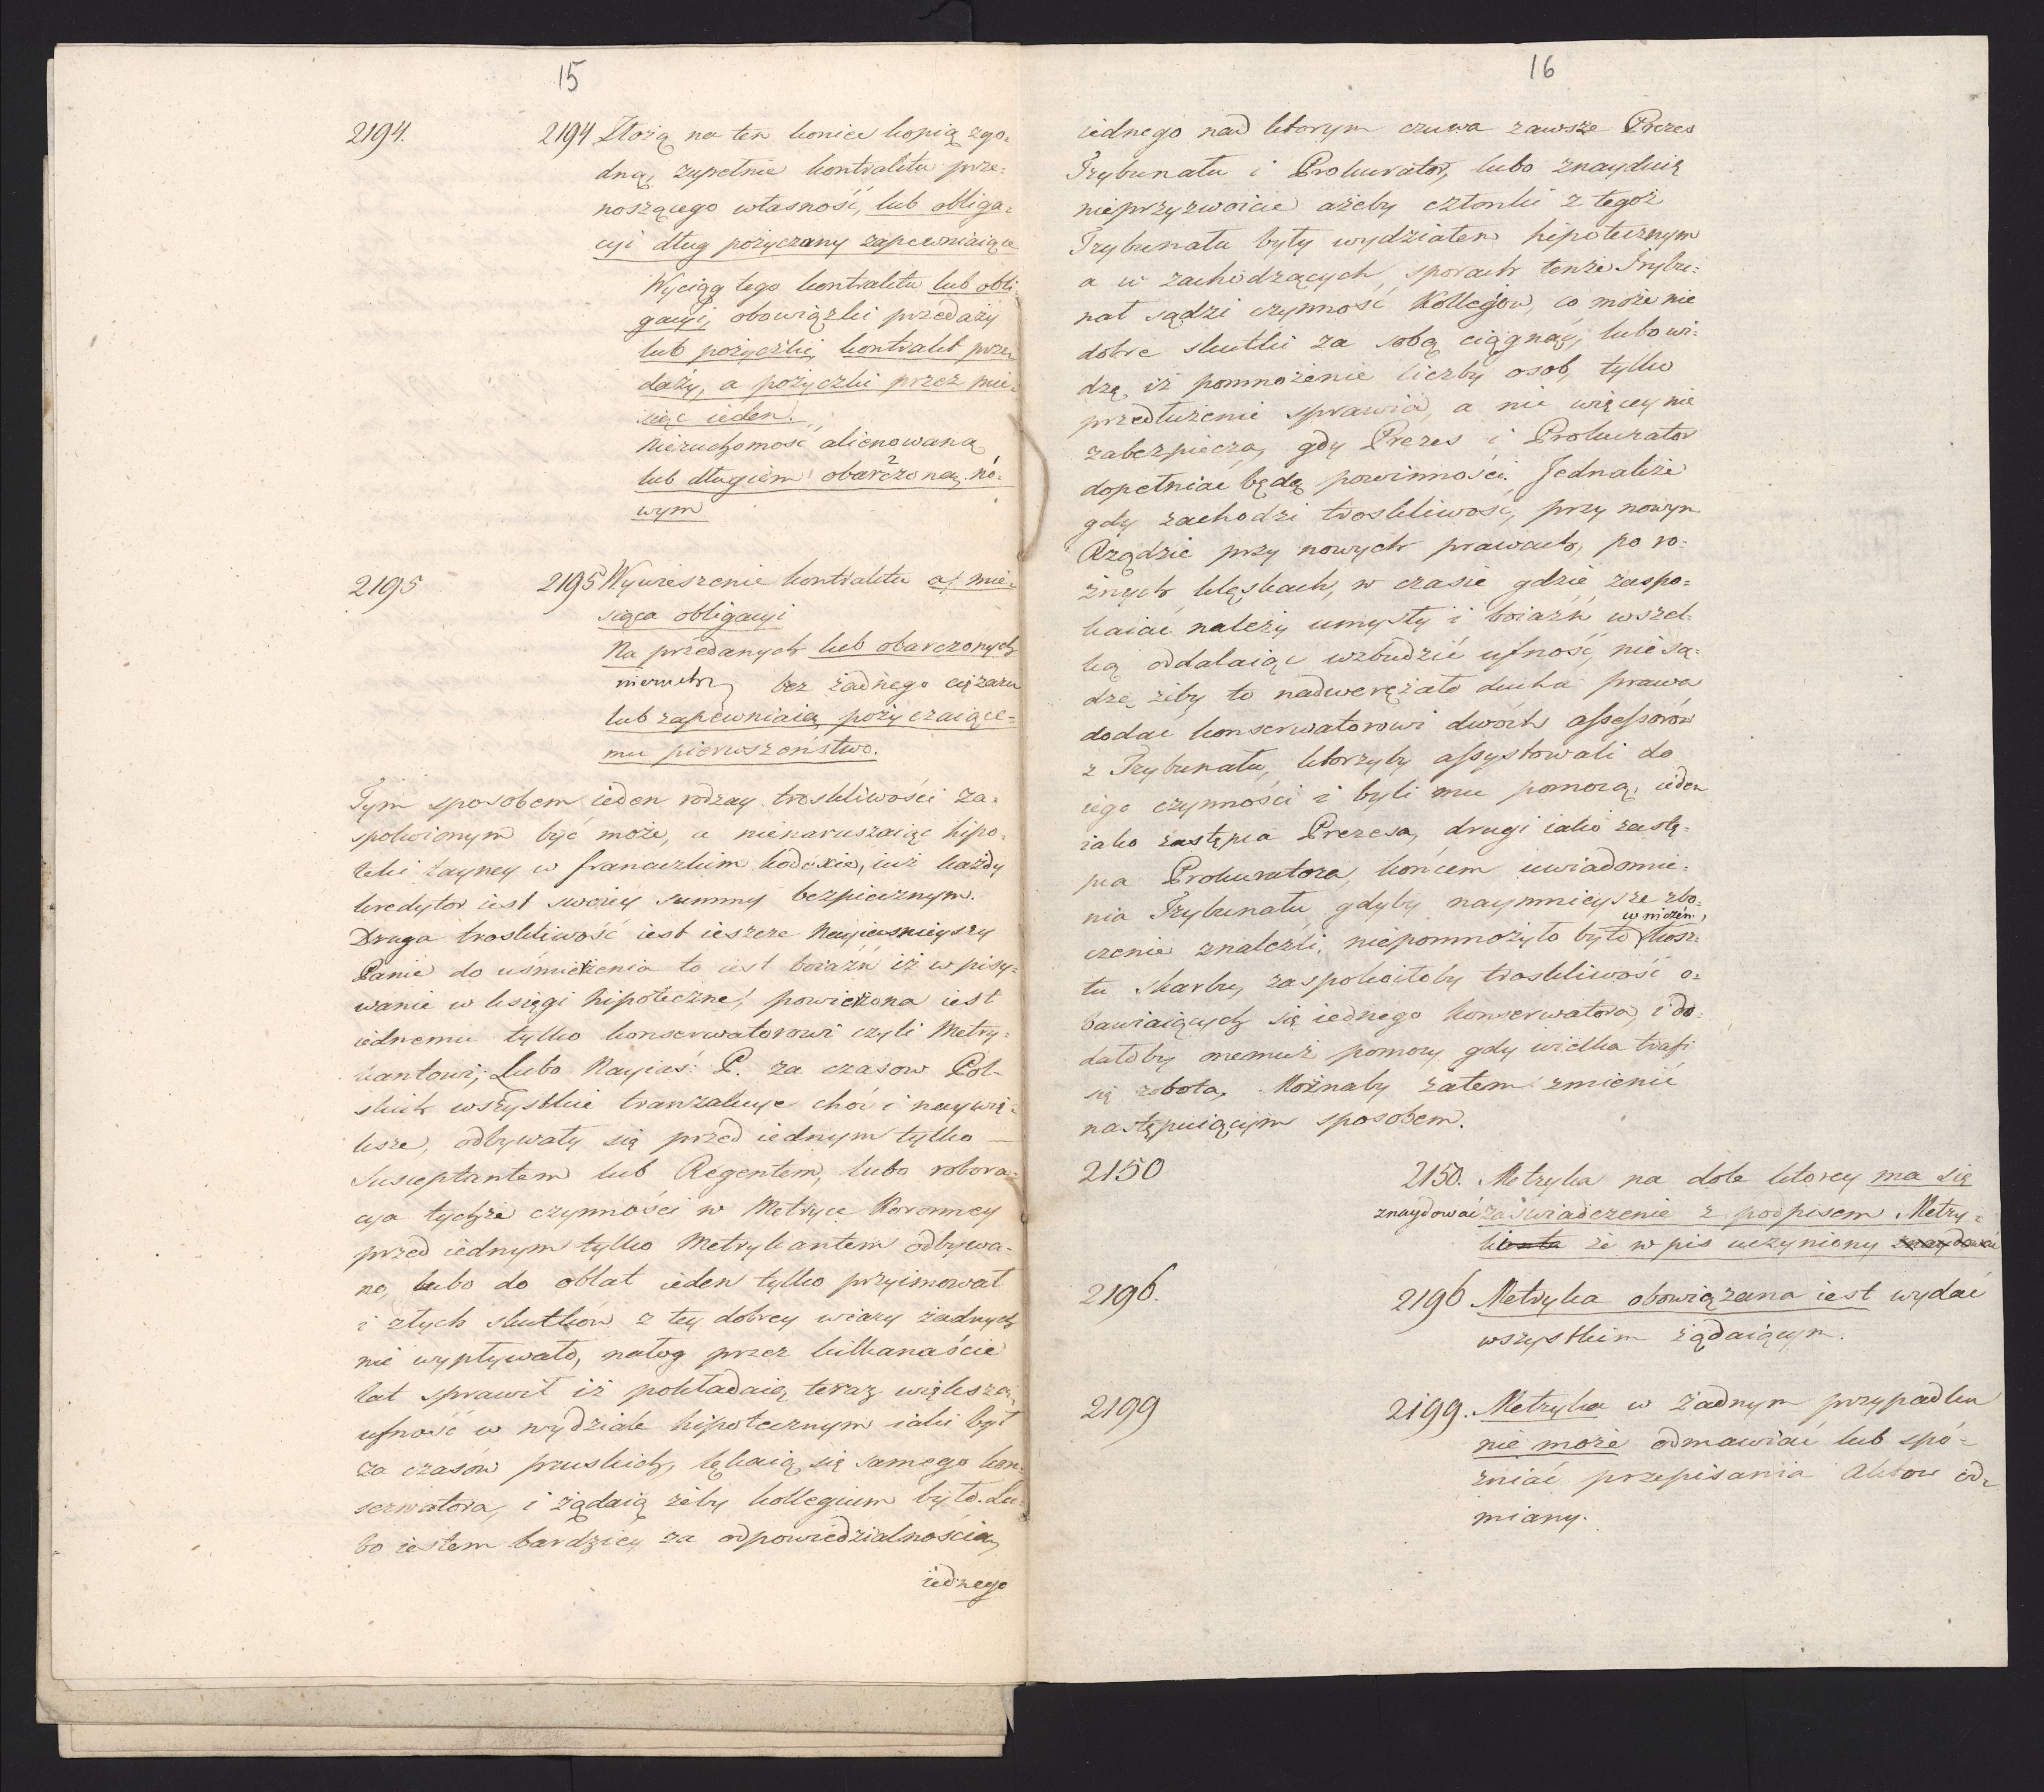 15
2194. 2194 Złożą na ten koniec kopią zgo=
dną, zupełnie kontraktu prze=
noszącego własność, lub obliga=
cyi dług pożyczany zapewniaiące
Wyciąg tego kontraktu lub obli=
gacyi, obowiązki przedaży
lub pożyczki, kontrakt prze=
daży, a pożyczki przez mie=
siąc ieden.
Nieruchomość alienowaną
lub długiem obarczoną no=
wym
2195 2195 Wywieszenie kontraktu a, mie=
siąca obligacyi
Na przedanych lub obarczonych
nieruch, bez żadnego ciężaru
lub zapewniaią pożyczaiące=
mu pierwszeństwo.
Tym sposobem ieden rodzay troskliwości za=
spokoionym być może, a nienaruszaiąc hipo=
teki tayney w francuzkim kodexie, iuż każdy
kredytor iest swoiey summy bezpiecznym.
Druga troskliwość iest ieszcze Nayiaśnieyszy
Panie do uśmierzenia to iest boiaźń iż wpisy=
wanie w księgi hipoteczne, powierzona iest
iednemu tylko konserwatorowi czyli Metry=
kantowi; Lubo Nayiaś: P. za czasow Pol=
skich wszystkie tranzakcye choć i naywię=
ksze, odbywały się przed iednym tylko
Susceptantem lub Regentem, lubo robora=
cya tychże czynności w Metryce Koronney
przed iednym tylko Metrykantem odbywa=
no, lubo do oblat ieden tylko przyimował
i złych skutków z tey dobrey wiary żadnych
nie wypływało, nałog przez kilkanaście
lat sprawił iż pokładaią teraz większą
ufność w wydziale hipotecznym iaki był
za czasów pruskich, lękaią się samego kon=
serwatora, i żądaią żeby kollegium było. Lu=
bo iestem bardziey za odpowiedzialnością
iednego
16
iednego nad ktorym czuwa zawsze Prezes
Trybunału i Prokurator, lubo znayduię
nieprzyzwoicie ażeby członki z tegoż
Trybunału były wydziałem hipotecznym
a w zachodzących sporach tenże Trybu=
nał sądzi czynność Kollegow, co może nie
dobre skutki za sobą ciągnąć, lubo wi=
dzę iż pomnożenie liczby osob, tylko
przedłużenie sprawia, a nic więcey nie
zabezpiecza, gdy Prezes i Prokurator
dopełniać będą powinności. Jednakże
gdy zachodzi troskliwość, przy nowym
Rządzie przy nowych prawach, po ro=
żnych klęskach, w czasie gdzie zaspo=
kaiać należy umysły i boiaźń wszel=
ką oddalaiąc wzbudzić ufność, nie są=
dzę żeby to nadwerężało ducha prawa
dodać konserwatorowi dwóch assessorów
z Trybunału, ktorzyby assystowali do
iego czynności i byli mu pomocą, ieden
iako zastępca Prezesa, drugi iako zastę=
pca Prokuratora, końcem uwiadomie=
nia Trybunału gdyby naymnieysze zbo=
czenie znaleźli, niepomnożyło było w niczém kosz=
tu skarbu, zaspokoiłoby troskliwość o=
bawiaiących się iednego konserwatora, i do=
dałoby onemuż pomocy gdy wielka trafi
się robota. Możnaby zatem zmienić
następuiącym sposobem.
2150 2150. Metryka na dole ktorey ma się
znaydować zaświadczenie z podpisem Metry=
kanta że wpis uczyniony znaydować
2196. 2196 Metryka obowiązana iest wydać
wszystkim żądaiącym.
2199 2199. Metryka w żadnym przypadku
nie może odmawiać lub spó=
źniać przepisania Aktow od=
miany.